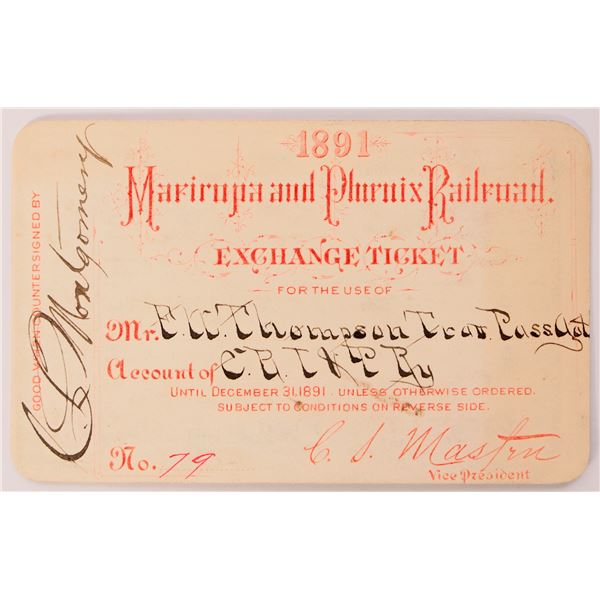 1891
Maricopa and Phœnix Railroad.
EXCHANGE TICKET
FOR THE USE OF
Mr. F. W. Thompson Trav. Pass Agt
Account of C. R. I. & P. Ry
UNTIL DECEMBER 31, 1891. UNLESS OTHERWISE ORDERED.
SUBJECT TO CONDITIONS ON REVERSE SIDE.
No. 79
C. S. Masten
Vice President
GOOD WHEN COUNTERSIGNED BY
Montgomery